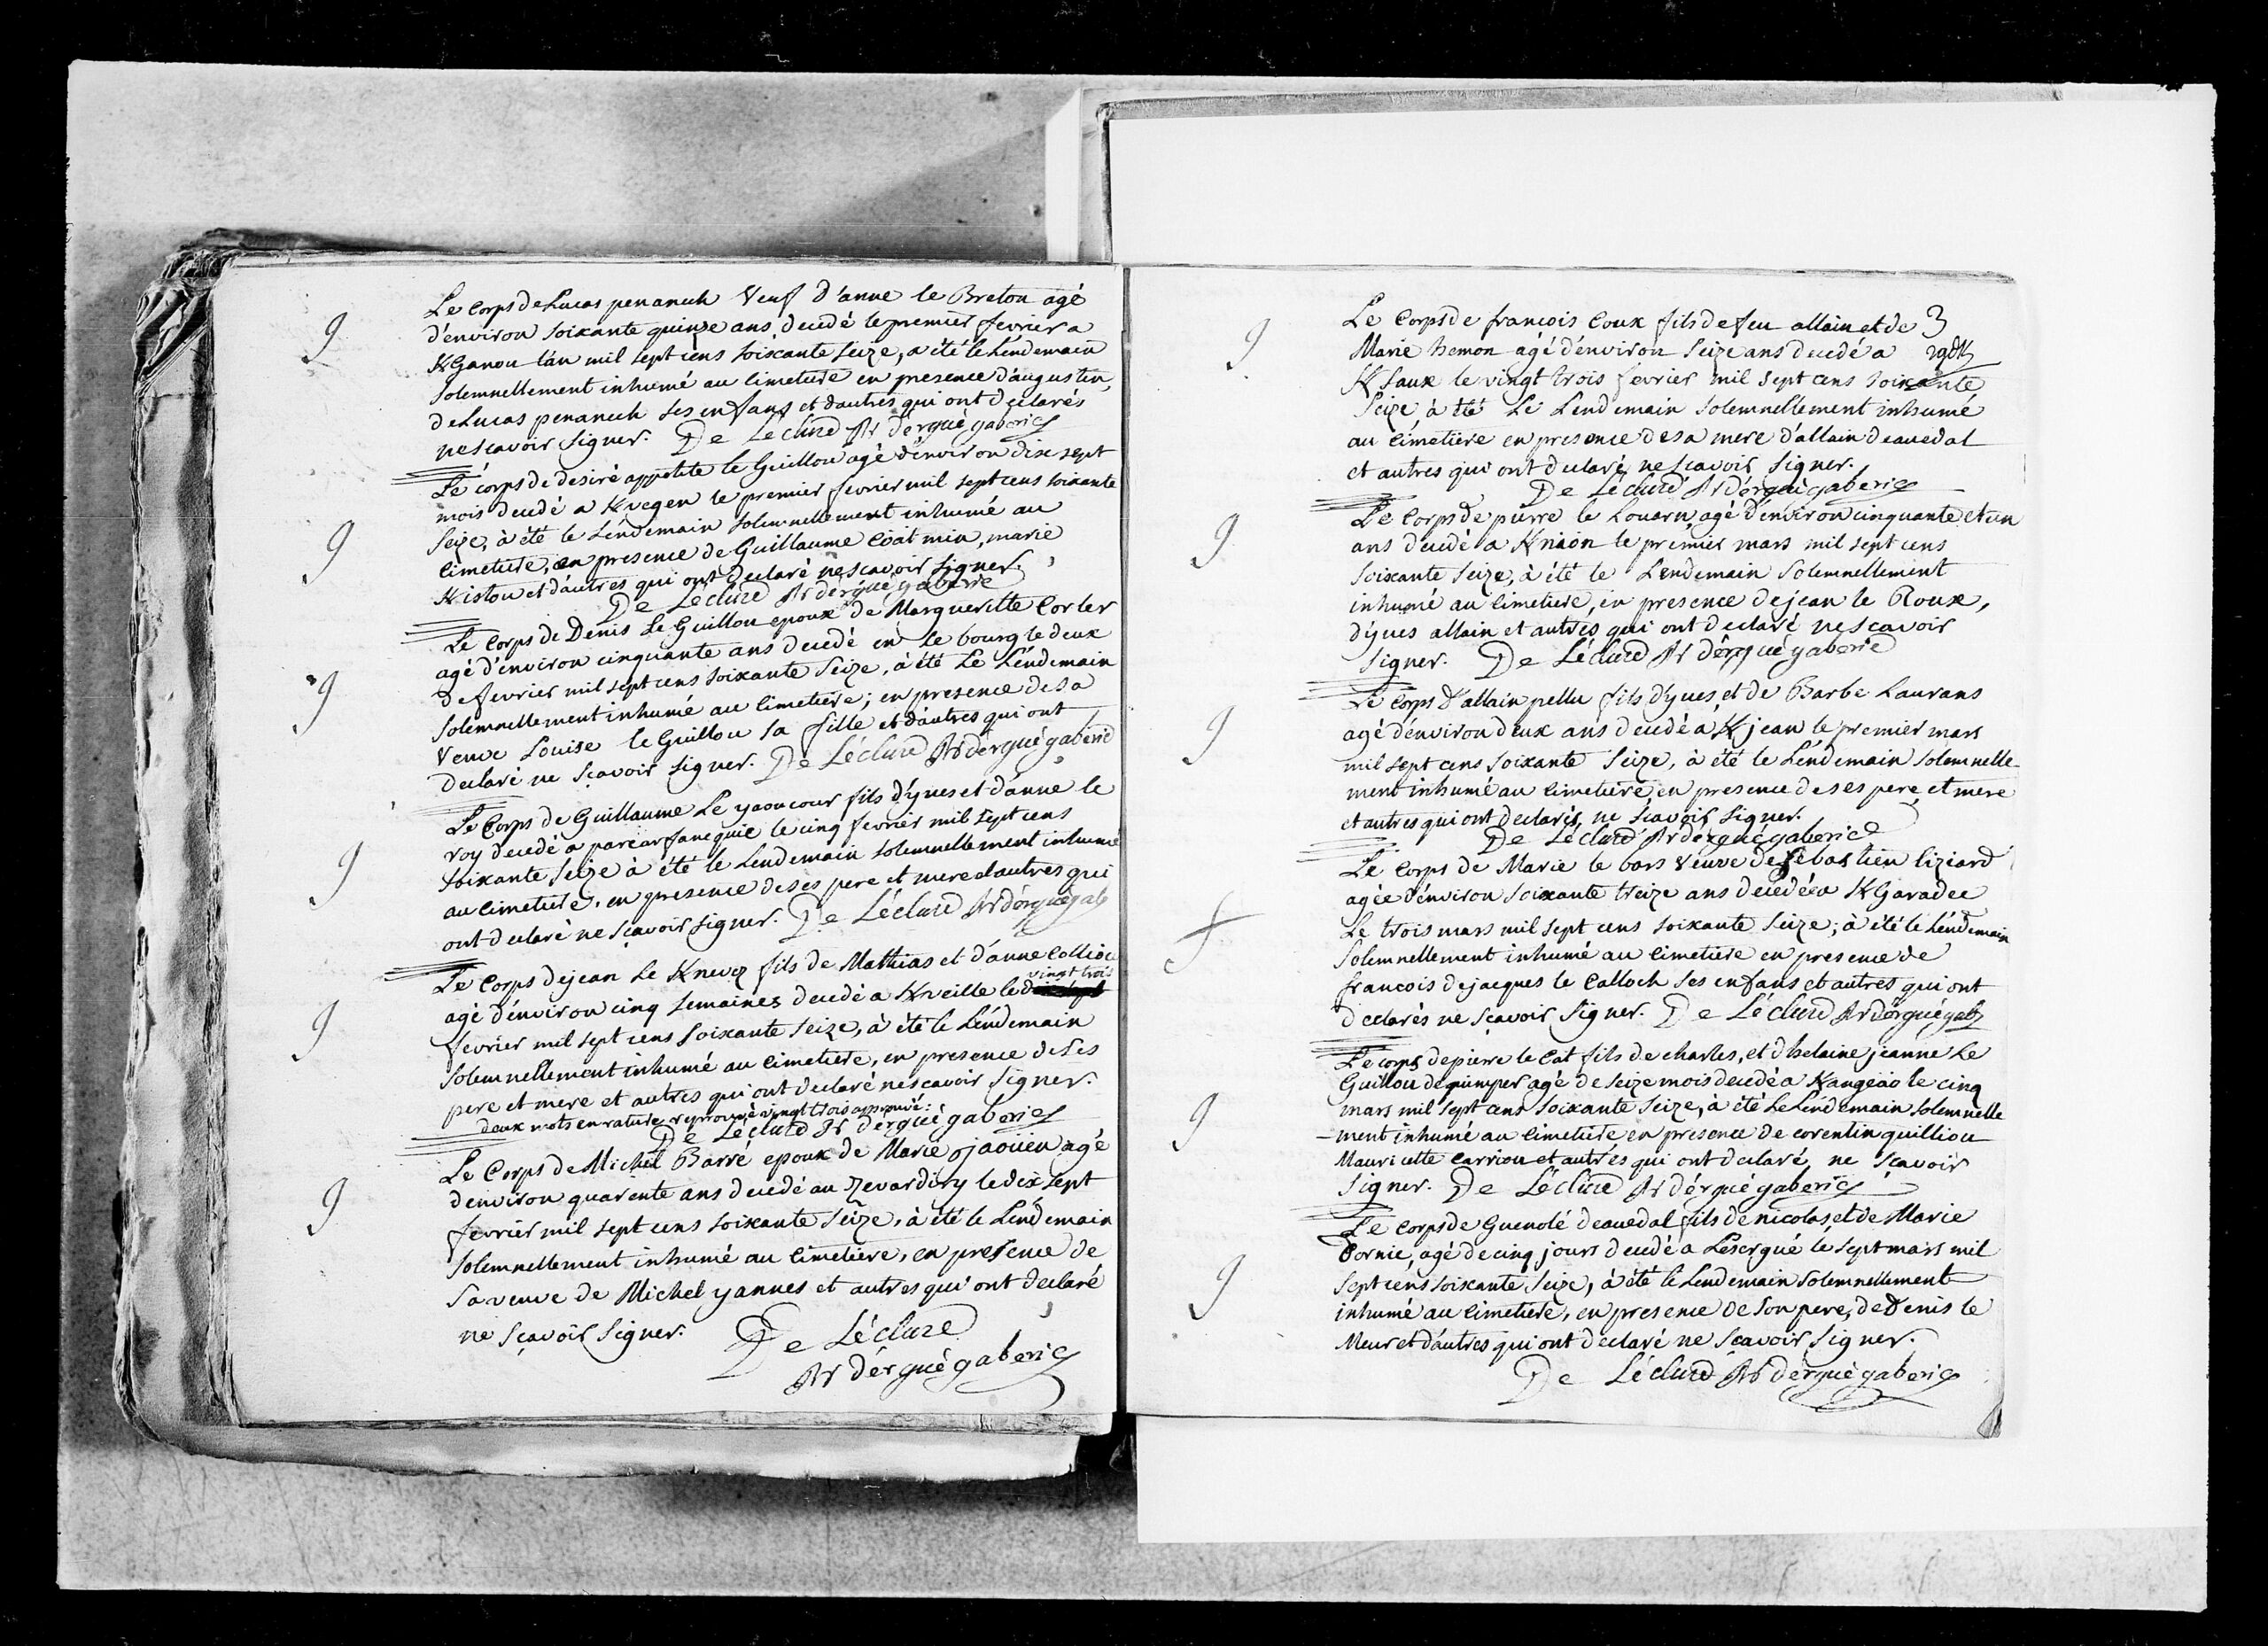 Le Corps de Lucas penanech Veuf d'anne le Breton agé
d'environ soixante quinze ans, decedé le premier fevrier a
KGanou l'an mil sept cens soixante seize, a été le Lendemain
solemnellement inhumé au cimetiere en presence d'augustin,
de Lucas penanech ses enfans et d'autres qui ont declarés
ne scavoir signer. De Lécluze Rr d'ergué gaberic
Le corps de desiré appolite le Guillou agé d'environ dix sept
mois decedé a Kvegen le premier fevrier mil sept cens soixante
seize, à été le Lendemain solemnellement inhumé au
cimetiere, en presence de Guillaume Coat min, marie
Kistou et d'autres qui ont declaré ne scavoir signer.
De Lécluze Rr d'ergué gaberic
Le Corps de Denis Le Guillou epoux de Margueritte Corler
agé d'environ cinquante ans decedé en le bourg le deux
de fevrier mil sept cens soixante Seize, à été Le Lendemain
solemnellement inhumé au cimetiere; en presence de sa
Veuve Louise le Guillou sa fille et d'autres qui ont
declaré ne sçavoir signer. De Lécluze Rr d'ergué gaberic
Le Corps de Guillaume Le yaoucour fils d'yves et d'anne le
roy decedé a parcarfancquic le cinq fevrier mil sept cens
soixante Seize à été le Lendemain solemnellement inhumé
au cimetiere, en presence de ses pere et mere d'autres qui
ont declaré ne sçavoir signer. De Lécluze Rr d'ergué gab
Le Corps de jean Le Knevez fils de Mathias et d'anne Collioc
vingt trois
agé d'environ cinq semaines decedé a Kveille le
fevrier mil sept cens soixante seize, à été le Lendemain
solemnellement inhumé au cimetiere, en presence de ses
pere et mere et autres qui ont declaré ne scavoir signer.
deux mots en rature reprouvé vingt trois approuvé:
De Lécluze Rr d'ergué gaberic
Le Corps de Michel Barré epoux de Marie ojaouen agé
d'environ quarente ans decedé au Revardiry le dix sept
fevrier mil sept cens soixante Seize, à été le Lendemain
solemnellement inhumé au Cimetiere, en presence de
sa veuve de Michel yannes et autres qui ont declaré
ne sçavoir signer. De Lécluze
Rr d'ergué gaberic
Le Corps de francois Coux fils de feu allain et de 3
Marie hemon agé d'environ Seize ans decedé a
Ksaux le vingt trois fevrier mil sept cens soixante
Seize, à été Le Lendemain solemnellement inhumé
au cimetiere en presence de sa mere d'allain deauedal
et autres qui ont declaré ne scavoir signer.
De Lécluze Rr d'ergué gaberic
Le Corps de pierre le Louarn, agé d'environ cinquante et un
ans decedé a Kniaon le premier mars mil sept cens
soixante seize, à été le Lendemain solemnellement
inhumé au cimetiere, en presence de jean le Roux,
d'yves allain et autres qui ont declaré ne scavoir
signer. De Lécluze Rr d'ergué gaberic
Le Corps d'allain pellu fils d'yves, et de Barbe Laurans
agé d'environ deux ans decedé a Kjean le premier mars
mil sept cens soixante Seize, à été le Lendemain solemnelle-
ment inhumé au cimetiere, en presence de ses pere et mere
et autres qui ont declarés ne scavoir signer.
De Lécluze Rr d'ergué gaberic
Le Corps de Marie le bars Veuve de sebastien liziard
agée d'environ soixante treize ans decedée a KGaradec
Le trois mars mil sept cens soixante Seize; à été le Lendemain
solemnellement inhumé au cimetiere en presence de
francois de jacques le Calloch ses enfans et autres qui ont
declarés ne sçavoir signer. De Lécluze Rr d'ergué gab
Le corps de pierre le Cat fils de charles, et d'helaine jeanne Le
Guillou de quimper agé de seize mois decedé a Kangeao le cinq
mars mil sept cens soixante Seize, à été Le Lendemain solemnelle
-ment inhumé au cimetiere en presence de corentin quilliou
Mauricette Carriou et autres qui ont declaré ne scavoir
signer. De Lécluze Rr d'ergué gaberic
Le Corps de Guenolé deauedal fils de nicolas, et de Marie
Cornic, agé de cinq jours decedé a Lesergué le sept mars mil
sept cens soixante, seize, à été le Lendemain solemnellement
inhumé au cimetiere, en presence de son pere, de Denis le
Meur et d'autres qui ont declaré ne sçavoir signer.
De Lécluze Rr d'ergué gaberic